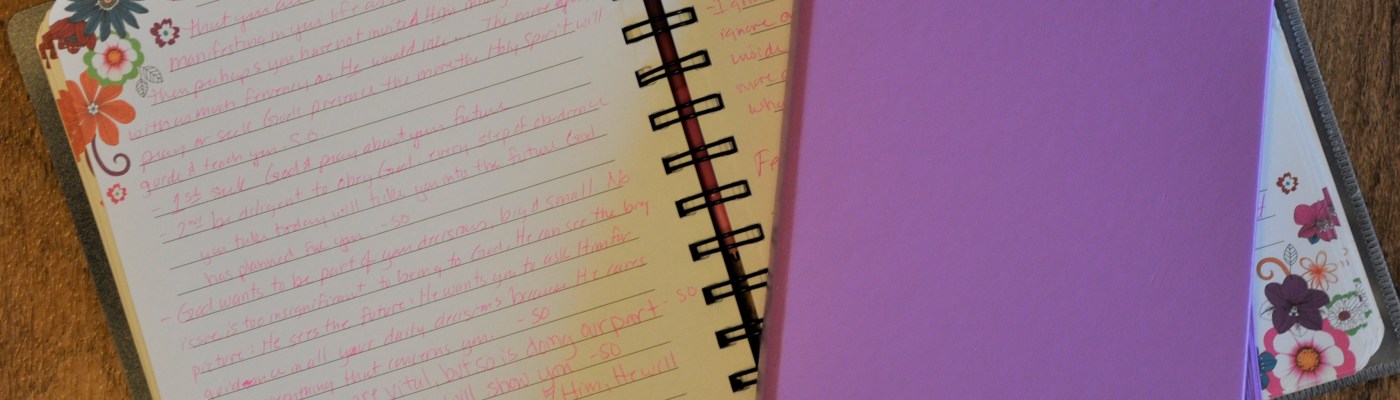 that you are
manifesting in your life as
then perhaps you have not invited Him
with as much fervency as He would like. The more you
pray or seek God's presence the more the Holy Spirit will
guide & teach you. SO
- 1st seek God & pray about your future
- 2nd be diligent to obey God, every step of obedience
you take today will take you into the future God
has planned for you. -SO
- God wants to be part of your decisions, big & small. No
issue is too insignificant to bring to God. He can see the big
picture; He sees the future; He wants you to ask Him for
guidance in all your daily decisions because He cares
everything that concerns you. -SO
are vital, but so is doing our part - SO
will show you -SO
Him, He will
ignore
words
more